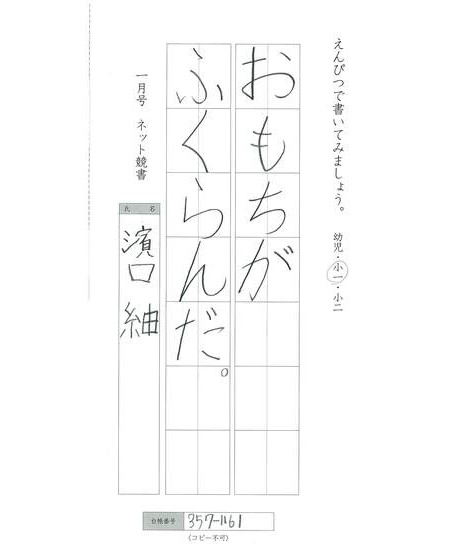 えんぴつで書いてみましょう。
幼児・小一・小二
おもちが
ふくらんだ。
一月号 ネット競書
氏名
濵口 紬
台帳番号 357-1161
(コピー不可)